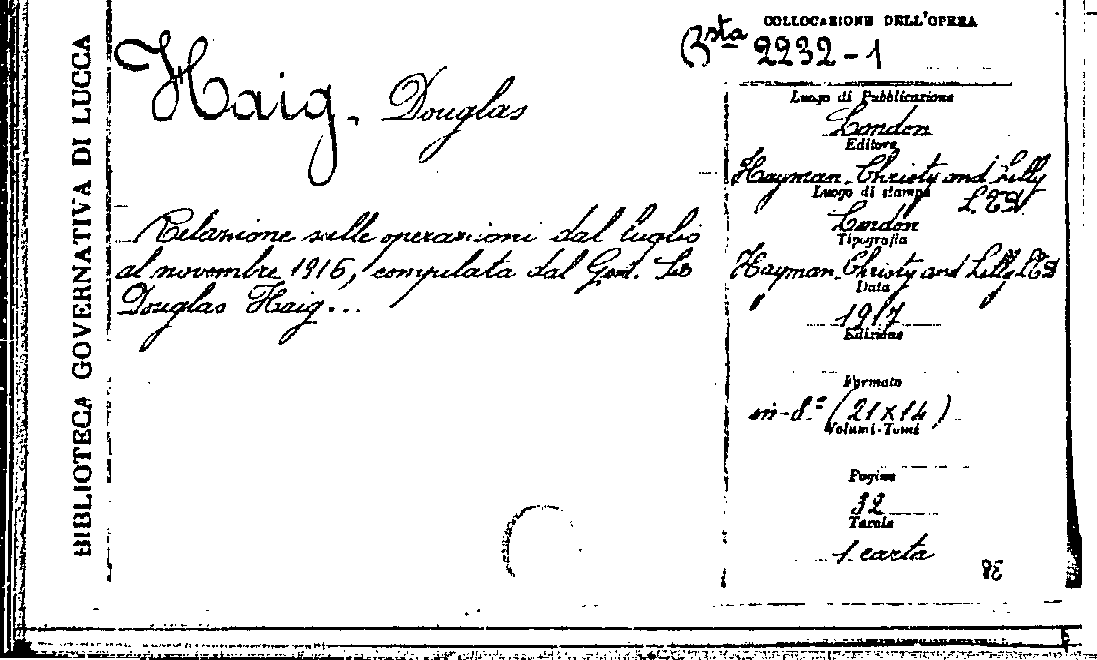 BIBLIOTECA GOVERNATIVA DI LUCCA
COLLOCAZIONE DELL'OPERA
Bsta 2232-1
Haig, Douglas
Relazione sulle operazioni dal luglio
al novembre 1916, compilata dal Gen.
Douglas Haig...
Luogo di Pubblicazione
London
Editore
Hayman, Christy and Lilly
LTD.
Luogo di stampa
London
Tipografia
Hayman, Christy and Lilly LTD
Data
1917
Edizione
Formato
in-8.° (21x14)
Volumi-Tomi
Pagine
32
Tavole
1 carta